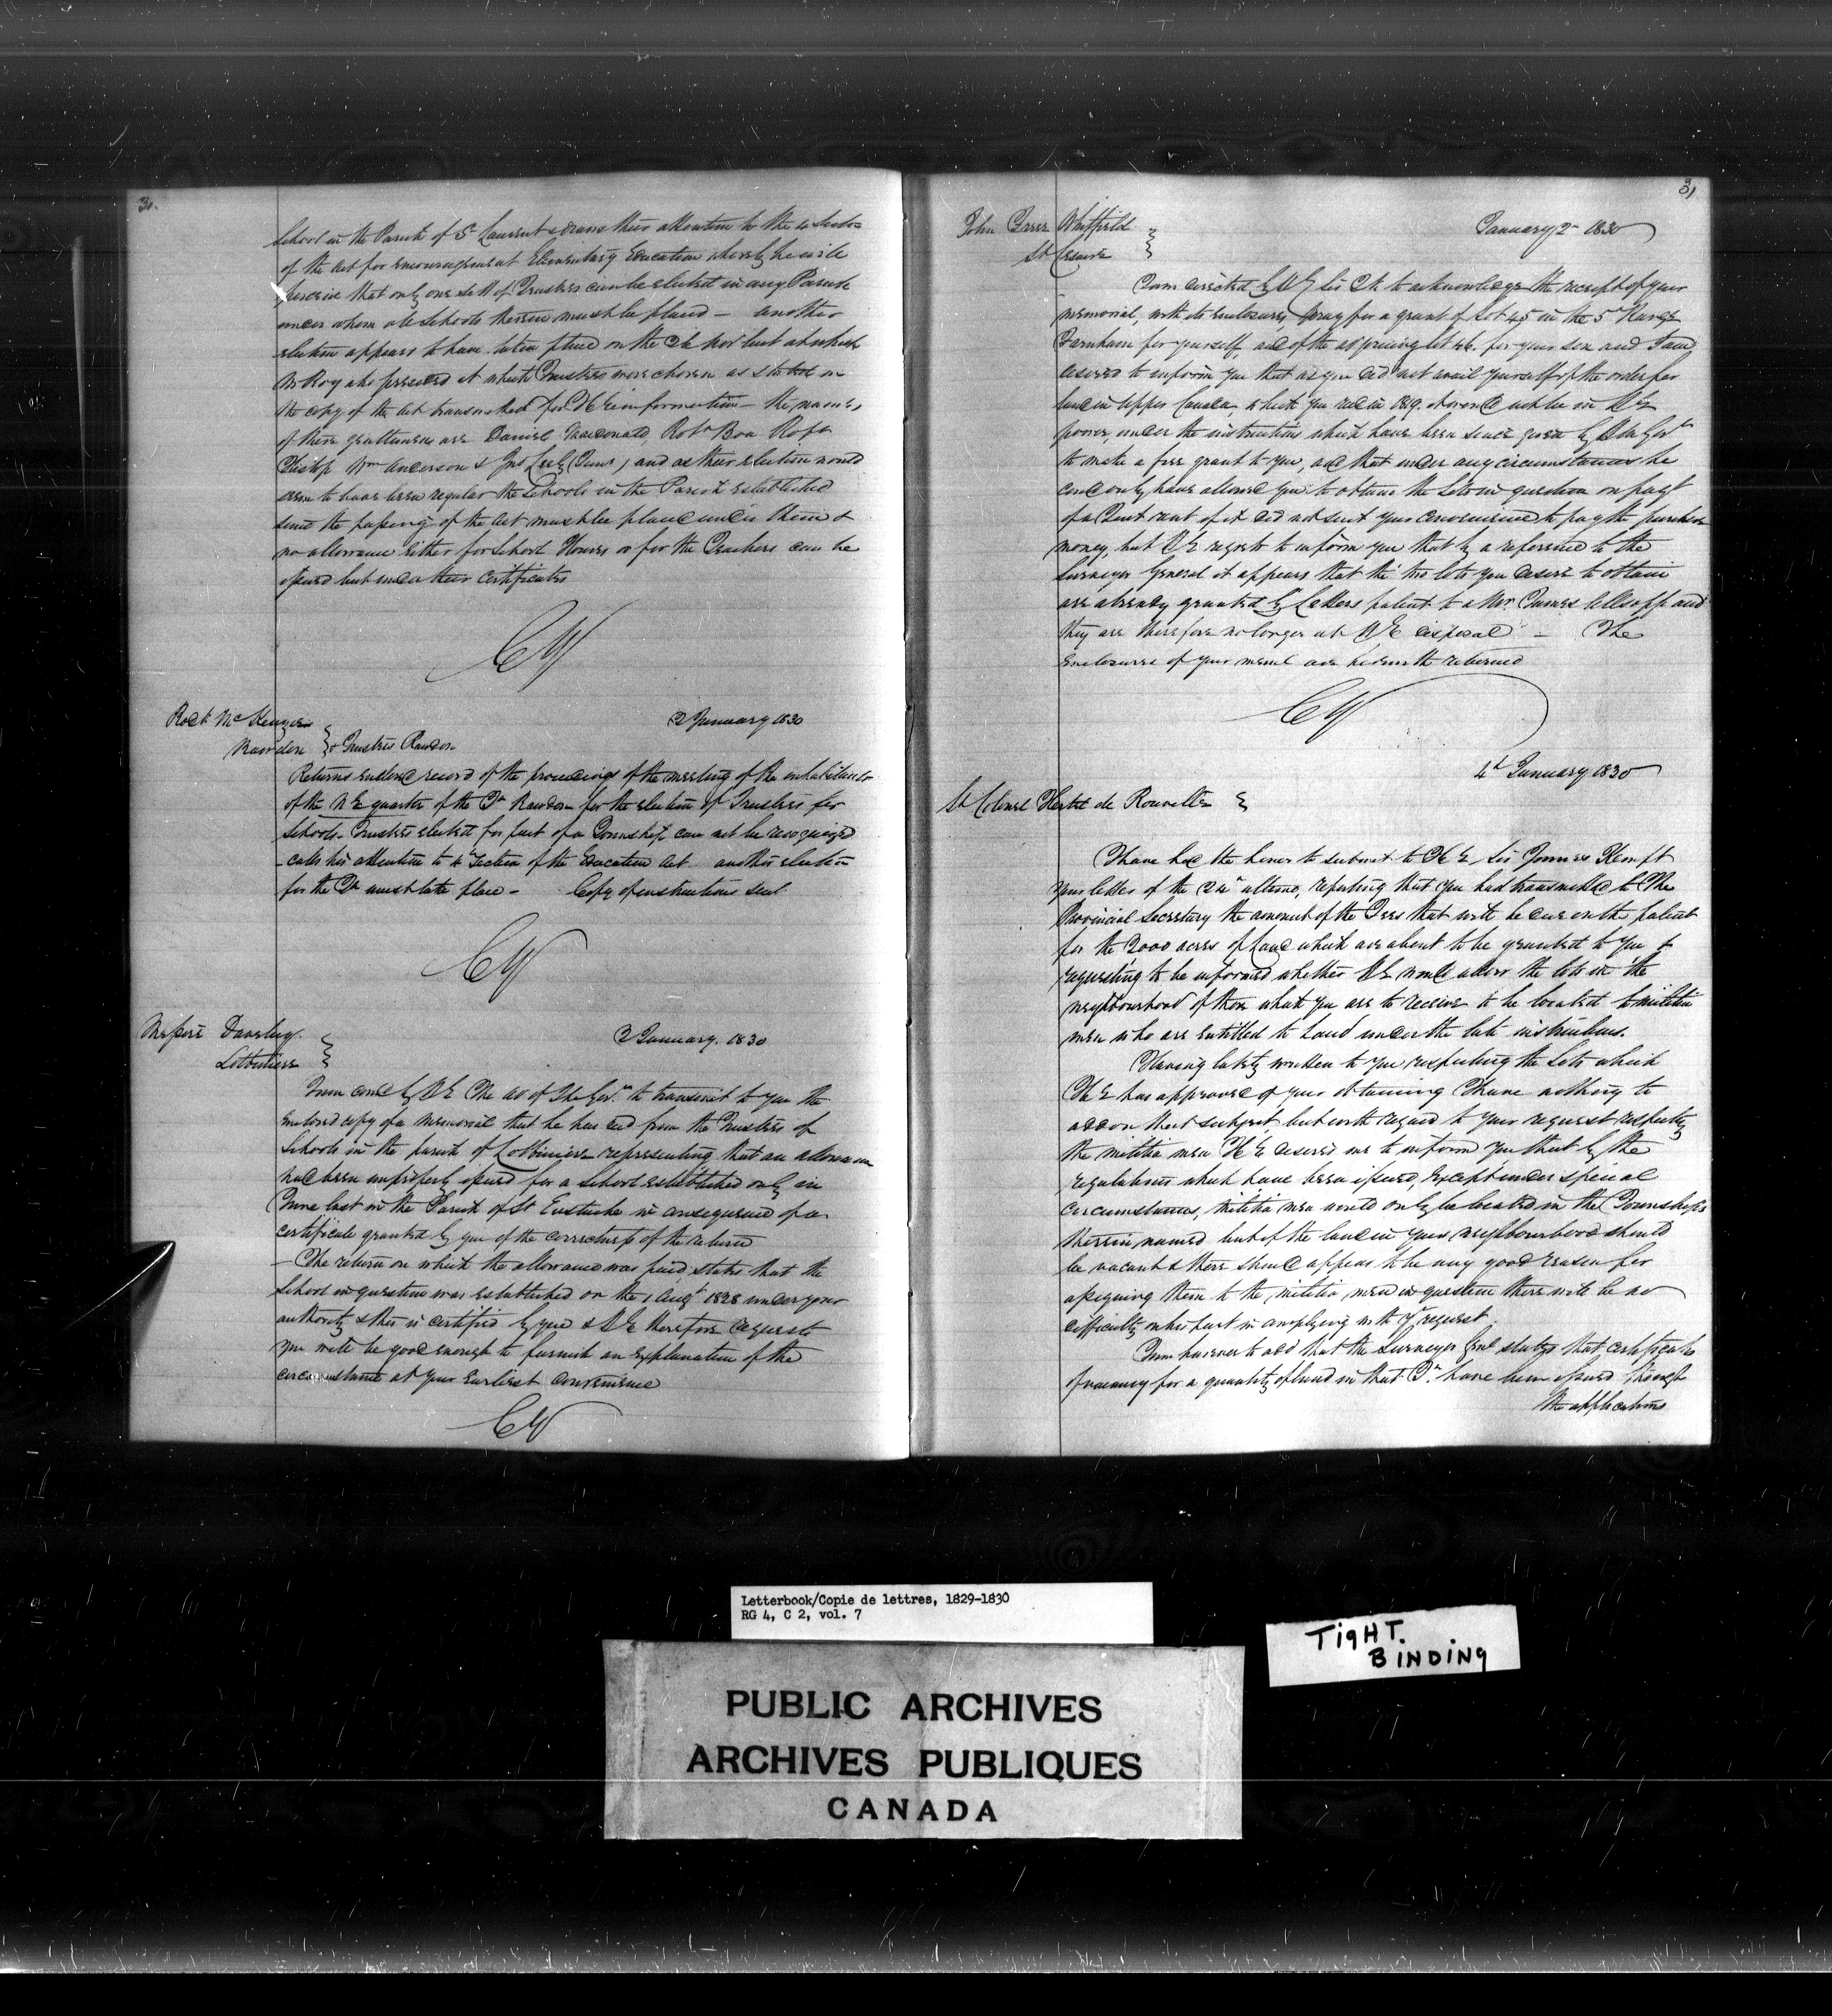 30.
School in the Parish of St Laurent & draws their attention to the 4 Section
of the Act for encouragement Elementary Education whereby he will
perceive that only one sett of Trustees can be elected in any Parish
under whom all Schools therein must be placed — another
election appears to have taken place on the at which
Mr Roy also presided at which Trustees were chosen as stated in
the copy of the Act transmitted for H E information — the names
of these gentlemen are Daniel Macdonald, Robt Boa
Philip Wm Anderson & Jno (Junr) and as their election would
seem to have been regular the Schools in the Parish established
since the passing of the Act must be placed under them &
no allowance either for School Houses or for the Teachers can be
issued but under their certificates
CY
Robt McKenzie
Rawdon } & Trustees Rawdon
2 January 1830
Returns enclosed record of the proceedings of the meeting of the inhabitants
of the N E quarter of the Tp Rawdon for the election of Trustees for
Schools — Trustees elected for part of a Township can not be recognized
— calls his attention to 4 Section of the Education Act another election
for the Tp must take place — Copy of instructions sent
CY
Messire Daveluy
Lotbiniere
2 January. 1830
I am comd by H E The Ad of The Govt to transmit to you the
enclosed copy of a memorial that he has recd from the Trustees of
Schools in the parish of Lotbiniere representing that an allowance
had been improperly issued for a School established only in
June last in the Parish of St Eustache in consequence of a
certificate granted by you of the correctness of the return
— The return on which the allowance was paid states that the
School in question was established on the 1 Augt 1828 under your
authority & this is certified by you & H E therefore requests
you will be good enough to furnish an explanation of the
circumstance at your earliest convenience
CY
31
John Whitfield
St Cesaire
January 2 1830
I am directed by H E Sir to acknowledge the receipt of your
memorial, with its enclosures, pray for a grant of Lot 45 in the 5 Range
Farnham for yourself, and of the adjoining lot 46. for your son and I am
desired to inform you that as you did not avail yourself of the order for
land in Upper Canada which you recd in 1819. it would not be in H E
power, under the instructions which have been since given by H M Govt
to make a free grant to you, and that under any circumstances he
could only have allowed you to obtain the Lots in question on payt
of a Quit rent if it did not suit your convenience to pay the purchase
money, but H E regrets to inform you that by a reference to the
Surveyor General it appears that the two lots you desire to obtain
are already granted by Letters patent to a Mr James Allsopp and
they are therefore no longer at H E disposal — The
enclosures of your meml are herewith returned
CY
4th January 1830
Lt Colonel Hertel de Rouville
I have had the honor to submit to H E Sir James Kempt
your letter of the 24 ultimo, reporting that you had transmitted to The
Provincial Secretary the amount of the Fees that will be due on the patent
for the 2000 acres of Land which are about to be granted to you &
requesting to be informed whether H E would allow the lots in the
neighbourhood of those which you are to receive to be located to militia
men who are entitled to Land under the late instructions.
Having lately written to you respecting the Lots which
H E has approved of your obtaining I have nothing to
add on that subject but with regard to your request respecting
the militia men H E desired me to inform you that by the
regulations which have been issued, except under special
circumstances, militia men would only be located in the Townships
therein named but if the land in your neighbourhood should
be vacant & there should appear to be any good reason for
assigning them to the militia men in question there will be no
difficulty on his part in complying with yr request.
I am however to add that the Surveyor Genl states that certificates
of vacancy for a quantity of land in that Tp have been issued though
the applications
Letterbook/Copie de lettres, 1829-1830
RG 4, C 2, vol. 7
TIGHT.
BINDING
PUBLIC ARCHIVES
ARCHIVES PUBLIQUES
CANADA